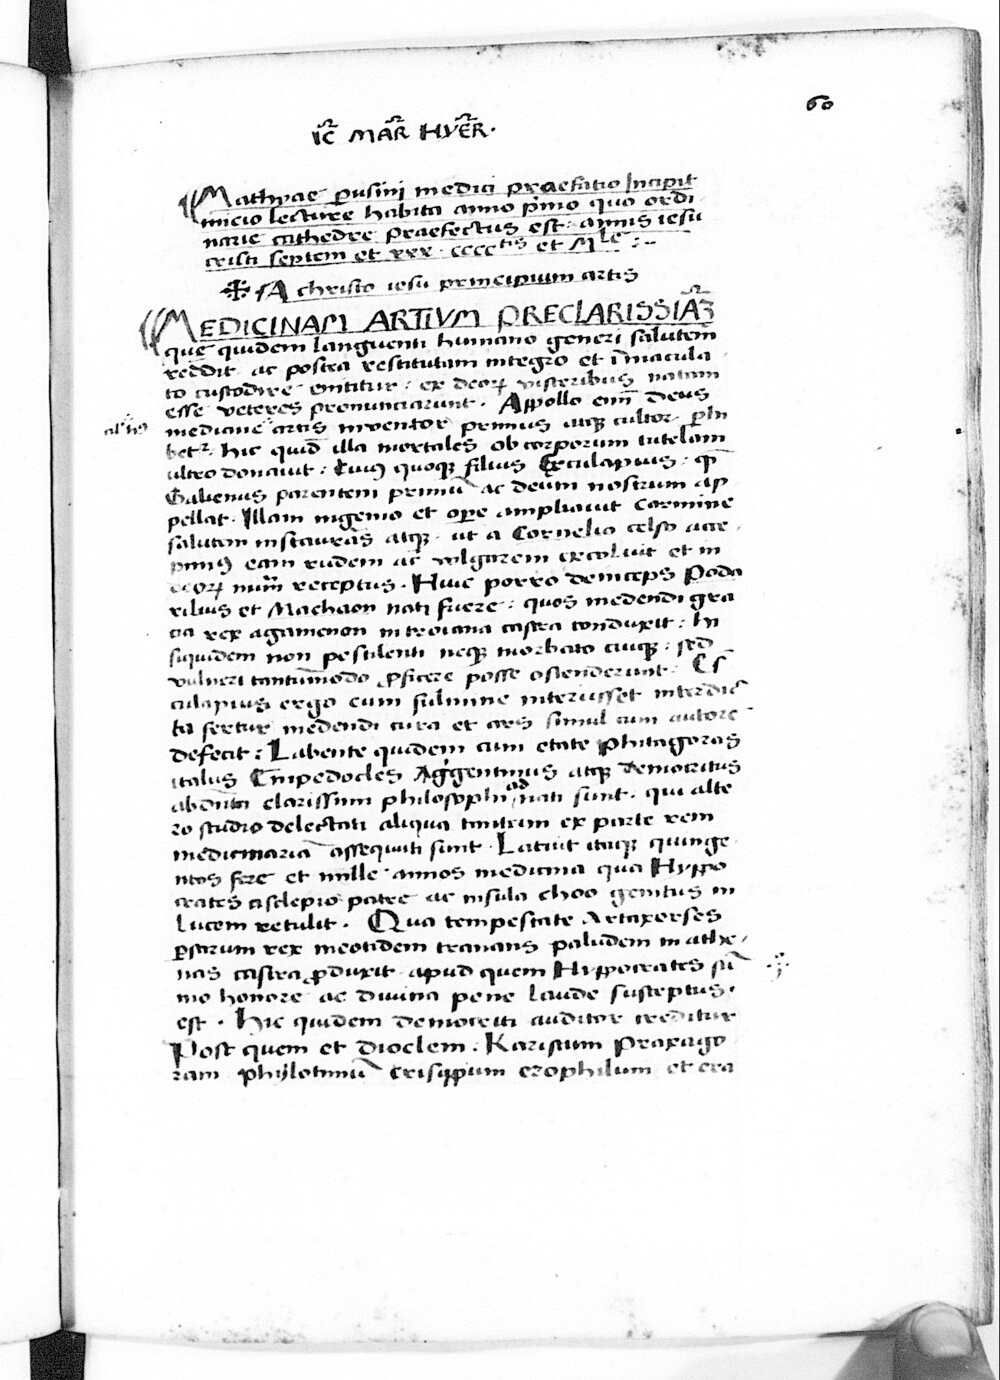 60
IC̄ MAR̄ HYER̄.
Mathyae pusini medici praefatio Incipit
inicio lecture habita anno pͥmo quo ordi
narie cathedre praefectus est. annis iesu
cristi septem et xxx. cccc^tis et M^le:..
✠ A christo iesu principium artis
MEDICINAM ARTIVM PRECLARISSIAꝫ̄
que quidem languenti humano generi salutem
reddit. ac postea restitutam integro et ī̄macula
to custodire enititur: ex deoꝝ visceribus natam
esse veteres pronunciarunt. Appollo enī̄ deus
medicine artis inventor primus atqꝫ cultor. ꝑhi
betᷣ. hic quid̄ illa mortales ob corporum tutelam
ultro donavit: Cuiꝯ quoqꝫ filius Esculapius: qͣ̄
Galienus parentem primū ac deum nostrum ap
pellat. Illam ingenio et ope ampliavit Carmine
salutem instaurās atqꝫ. ut a Cornelio celso acce
pimꝯ eam rudem ac vulgarem excoluit et in
deoꝝ num̄ receptus. Huic porro deinceps Poda
rilius et Machaon nati fuere: quos medendi gra
cia rex agamenon in troiana castra conduxit: hi
siquidem non pestilenti neqꝫ morbato cuiqꝫ: sed
vulneri tantūmodo ꝓficere posse ostenderunt. Es
culapius ergo cum fulmine interiisset interdic
ta fertur medendi cura et ars simul cum autore
defecit: Labente quidem cum etate Phitagoras
italus Empedocles Agrigentinus atqꝫ Democritus
clarissimi philosophi nati sunt. qui alte
ro studio delectati aliqua tantum ex parte rem
medicinariā assequuti sunt. Latuit itaqꝫ quinge
ntos fere et mille annos medicina qua Hyppo
crates asclepio patre ac insula choo genitus in
Lucem retulit. Qua tempestate Artaxerses
ꝑsarum rex meotidem tranans paludem in athe
nas castra ꝓduxit. apud quem Hyppocrates sū
mo honore ac divina pene laude susceptus.
est. Hic quidem democriti auditor creditur
Post quem et Dioclem. Karistium Praxago
ram phylotimū Crisippum erophilum et era